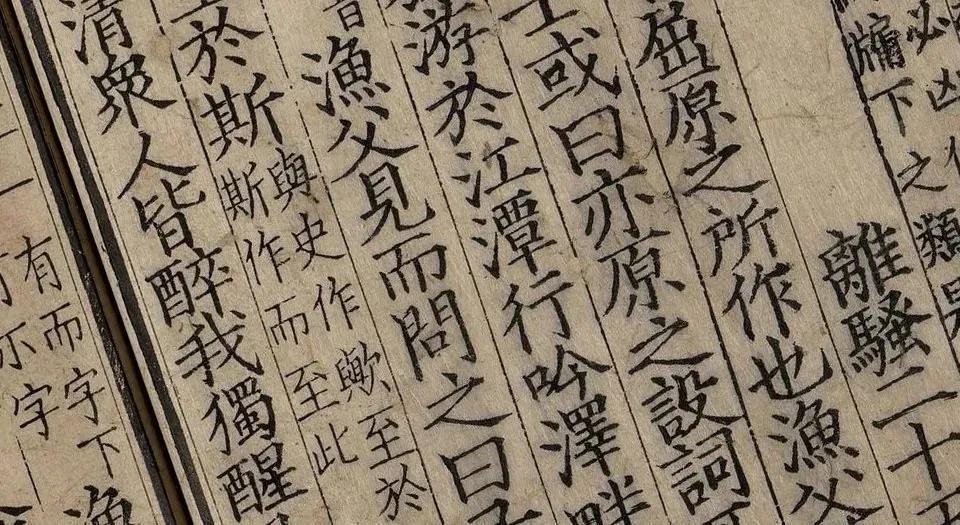 必凶
牖下之類
離騷二十
屈原之所作也漁父
或曰亦原之設詞
游於江潭行吟澤畔
漁父見而問之曰
於斯
與史作歟至於
斯作而至此
清衆人皆醉我獨醒
有而字下
字